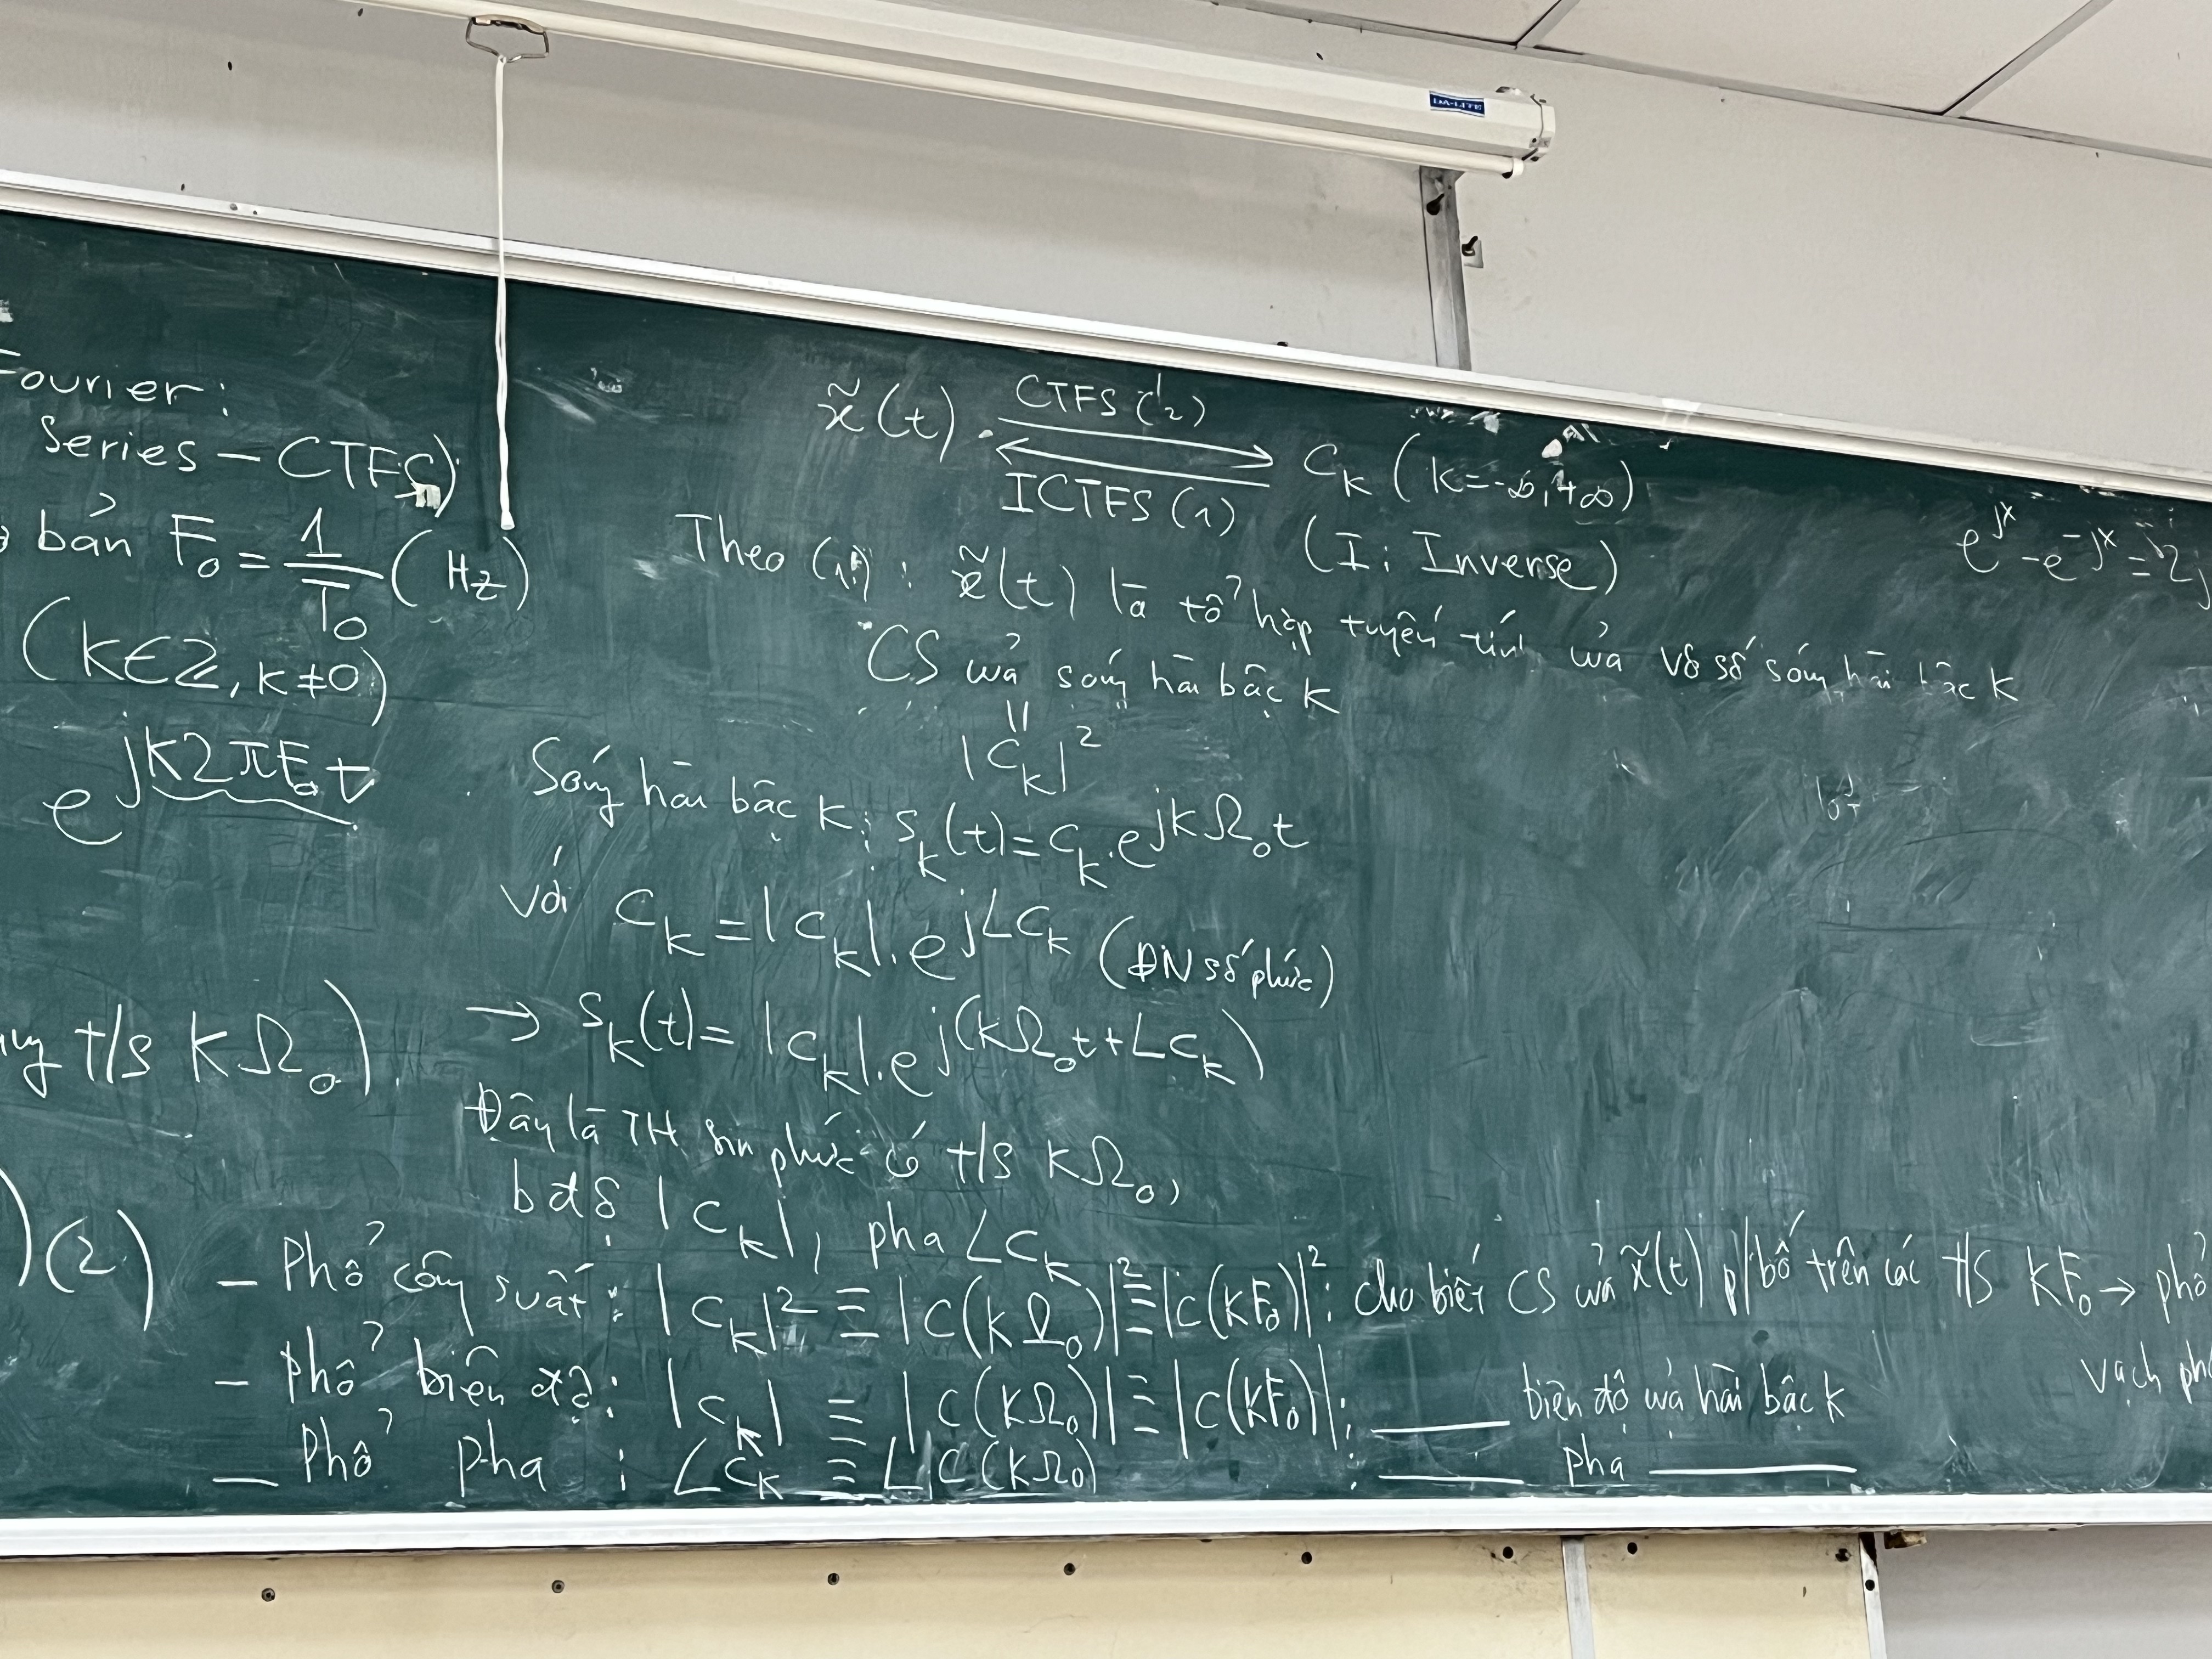 DA-LITE
Fourier:
Series - CTFS)
bản F₀ = 1/T₀ (Hz)
(k∈ℤ, k≠0)
e^{jk2πF₀t}
t/s kΩ₀)
(2)
x̃(t) ⇄ c_k (k=-∞,+∞)
CTFS (2)
ICTFS (1)
(I: Inverse)
Theo (1): x̃(t) là tổ hợp tuyến tính của vô số sóng hài bậc k
CS của sóng hài bậc k
=
|c_k|²
Sóng hài bậc k: s_k(t) = c_k.e^{jkΩ₀t}
với c_k = |c_k|.e^{j∠c_k} (ĐN số phức)
→ s_k(t) = |c_k|.e^{j(kΩ₀t+∠c_k)}
Đây là TH sin phức có t/s kΩ₀,
bđộ |c_k|, pha ∠c_k
- Phổ công suất: |c_k|² ≡ |c(kΩ₀)|² ≡ |c(kF₀)|²: cho biết CS của x̃(t) p/bố trên các t/s kF₀ → phổ
vạch
- Phổ biên độ: |c_k| ≡ |c(kΩ₀)| ≡ |c(kF₀)|: ___ biên độ của hài bậc k
- Phổ pha: ∠c_k ≡ ∠c(kΩ₀) : ___ pha ___
e^{jx} - e^{-jx} = 2j